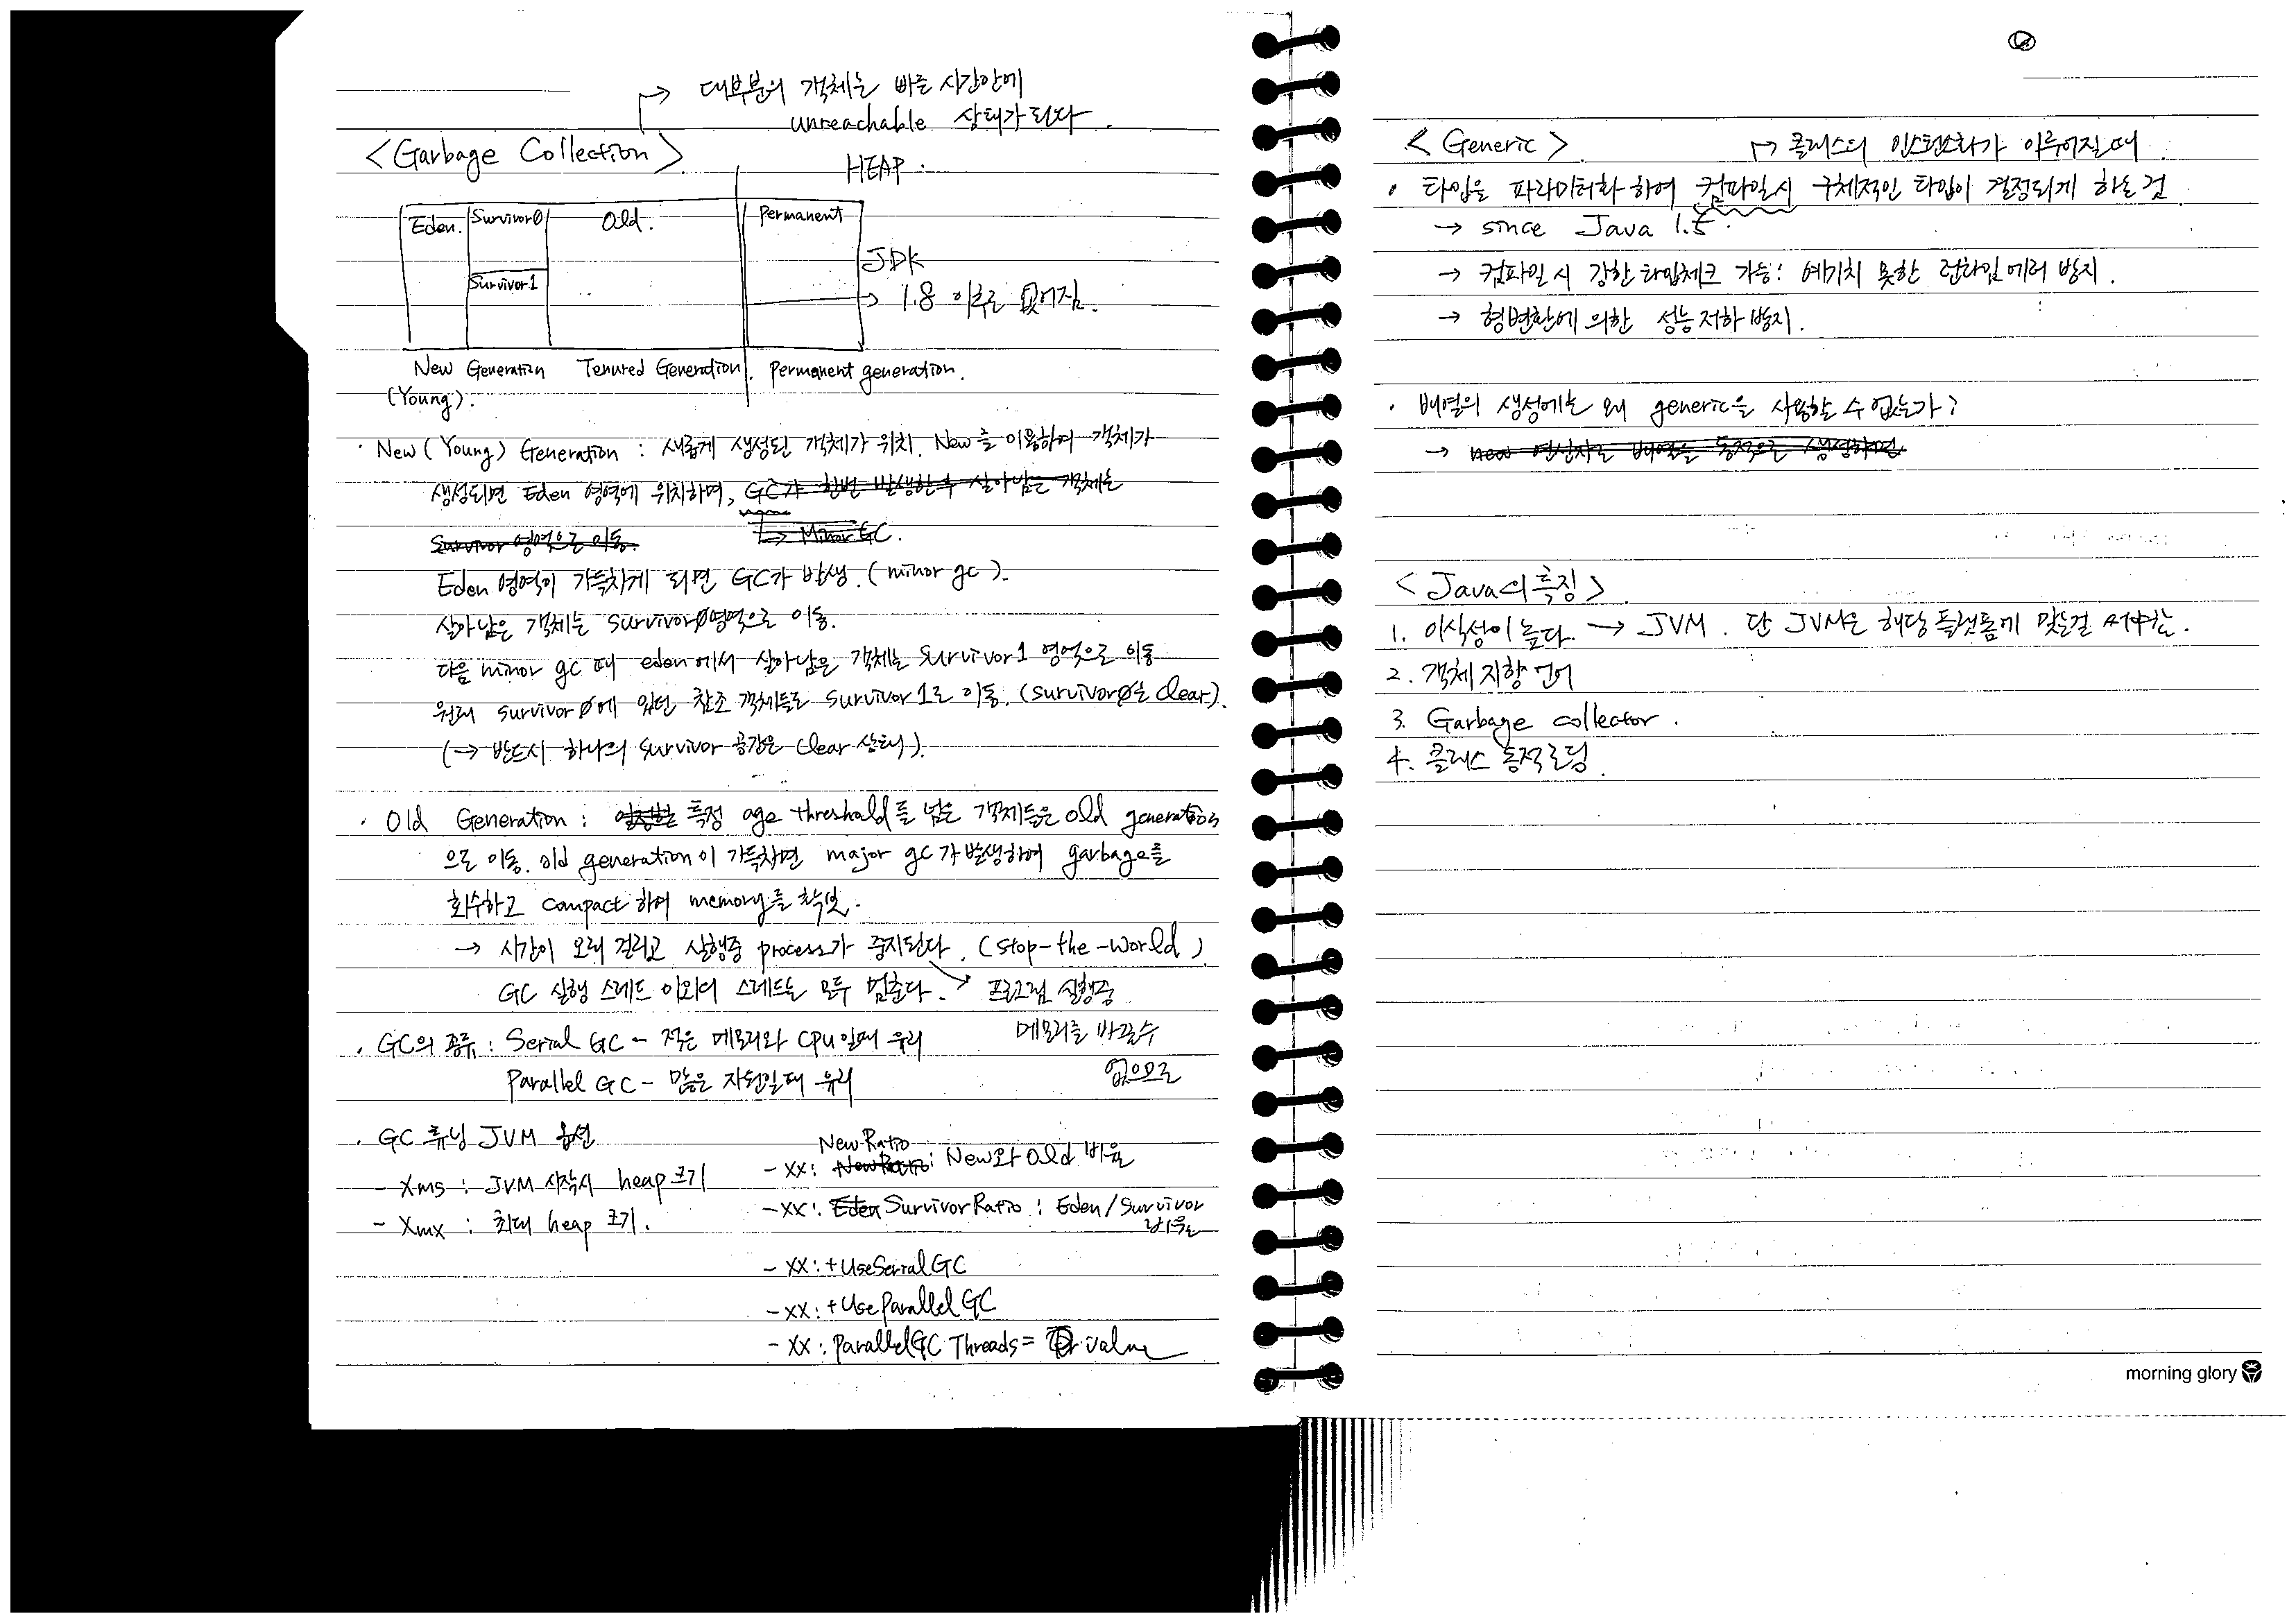 대부분의 객체는 빠른 시간안에
unreachable 상태가 된다.
<Garbage Collection>
HEAP
Eden. Survivor0 Old. Permanent
Survivor1
JDK
→ 1.8 이후로 없어짐.
New Generation Tenured Generation. permanent generation.
(Young).
· New (Young) Generation : 새롭게 생성된 객체가 위치. New를 이용하여 객체가
생성되면 Eden 영역에 위치하며, GC가 한번 발생한후 살아남은 객체는
Survivor 영역으로 이동.
→ Minor GC.
Eden 영역이 가득차게 되면 GC가 발생. (minor gc).
살아남은 객체는 survivor0영역으로 이동.
다음 minor gc 때 eden에서 살아남은 객체는 survivor1 영역으로 이동
원래 survivor0에 있던 참조 객체들도 survivor1로 이동. (survivor0는 clear).
(→ 반드시 하나의 survivor 공간은 clear 상태).
· Old Generation : 특정 age threshold를 넘은 객체들은 old generation
으로 이동. old generation이 가득차면 major gc가 발생하여 garbage를
회수하고 compact 하여 memory를 확보.
→ 시간이 오래 걸리고 실행중 process가 중지된다. (stop-the-world)
GC 실행 스레드 이외의 스레드는 모두 멈춘다. → 프로그램 실행중
메모리를 바꿀수
없으므로
· GC의 종류 : Serial GC - 적은 메모리와 cpu일때 유리
Parallel GC - 많은 자원일때 유리
· GC 튜닝 JVM 옵션
- Xms : JVM 시작시 heap 크기
- Xmx : 최대 heap 크기.
NewRatio
- XX: NewRatio: New와 Old 비율
- XX: Eden SurvivorRatio : Eden/Survivor
비율
- XX: +UseSerialGC
- XX: +UseParallelGC
- XX: ParallelGC Threads= value
<Generic>
→ 클래스의 인스턴스화가 이루어질 때
· 타입을 파라미터화 하여 컴파일시 구체적인 타입이 결정되게 하는것
→ since Java 1.5.
→ 컴파일 시 강한 타입체크 가능: 예기치 못한 런타임 에러 방지.
→ 형변환에 의한 성능 저하 방지.
· 배열의 생성에는 왜 generic을 사용할 수 없는가?
→ new 연산자로 배열을 동적으로 생성하면
<Java의 특징>
1. 이식성이 높다. → JVM. 단 JVM은 해당 플랫폼에 맞는걸 써야함.
2. 객체 지향 언어
3. Garbage collector.
4. 클래스 동적 로딩.
morning glory